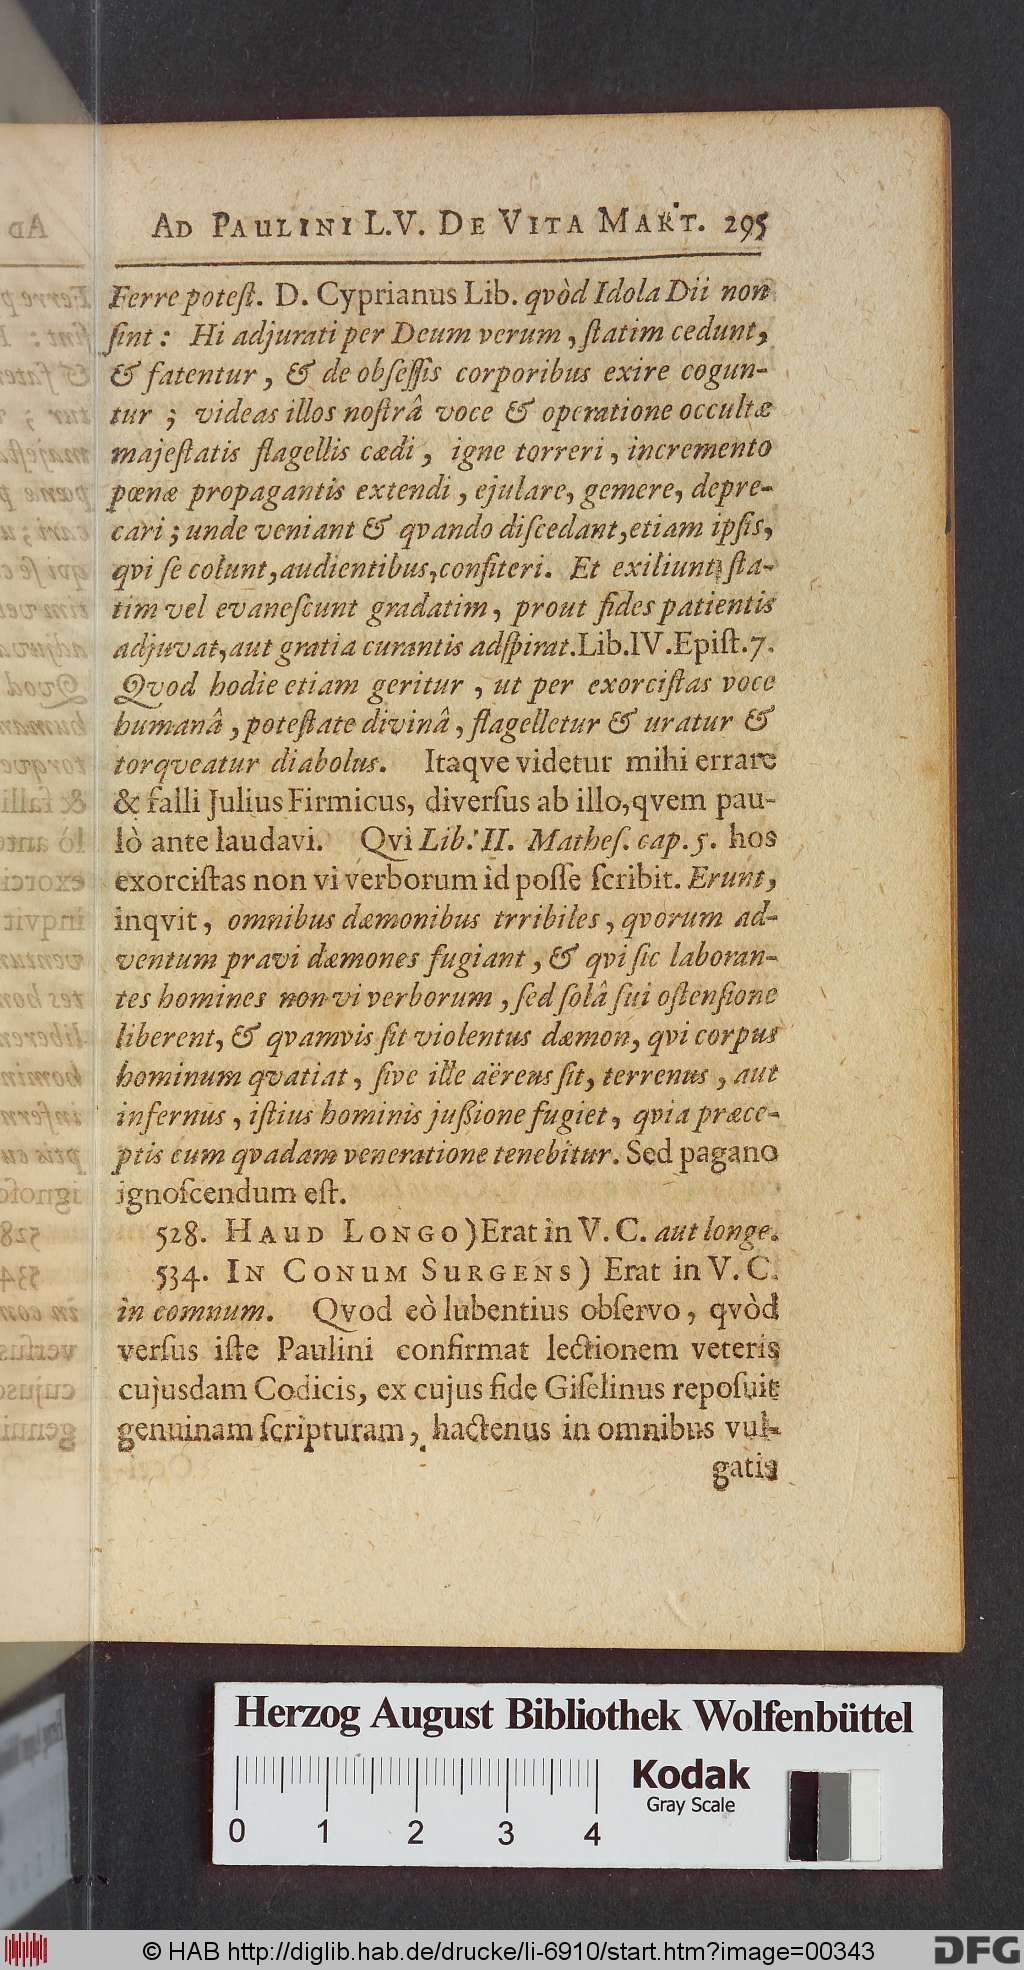 AD PAULINI L.V. DE VITA MART. 295
Ferre potest. D. Cyprianus Lib. qvòd Idola Dii non
sint: Hi adjurati per Deum verum, statim cedunt,
& fatentur, & de obsessis corporibus exire cogun-
tur; videas illos nostrâ voce & operatione occultæ
majestatis flagellis cædi, igne torreri, incremento
pœnæ propagantis extendi, ejulare, gemere, depre-
cari; unde veniant & qvando discedant, etiam ipsis,
qvi se colunt, audientibus, confiteri. Et exiliunt sta-
tim vel evanescunt gradatim, prout fides patientis
adjuvat, aut gratia curantis adspirat. Lib. IV. Epist. 7.
Qvod hodie etiam geritur, ut per exorcistas voce
humanâ, potestate divinâ, flagelletur & uratur &
torqveatur diabolus. Itaqve videtur mihi errare
& falli Julius Firmicus, diversus ab illo, qvem pau-
lò ante laudavi. Qvi Lib. II. Mathes. cap. 5. hos
exorcistas non vi verborum id posse scribit. Erunt,
inqvit, omnibus dæmonibus trribiles, qvorum ad-
ventum pravi dæmones fugiant, & qvi sic laboran-
tes homines non vi verborum, sed solâ sui ostensione
liberent, & qvamvis sit violentus dæmon, qvi corpus
hominum qvatiat, sive ille aëreus sit, terrenus, aut
infernus, istius hominis jussione fugiet, qvia præce-
ptis eum qvadam veneratione tenebitur. Sed pagano
ignoscendum est.
528. HAUD LONGO) Erat in V. C. aut longe.
534. IN CONUM SURGENS) Erat in V. C.
in comnum. Qvod eò lubentius observo, qvòd
versus iste Paulini confirmat lectionem veteris
cujusdam Codicis, ex cujus fide Giselinus reposuit
genuinam scripturam, hactenus in omnibus vul-
gatis
Herzog August Bibliothek Wolfenbüttel
Kodak
Gray Scale
0 1 2 3 4
© HAB http://diglib.hab.de/drucke/li-6910/start.htm?image=00343
DFG